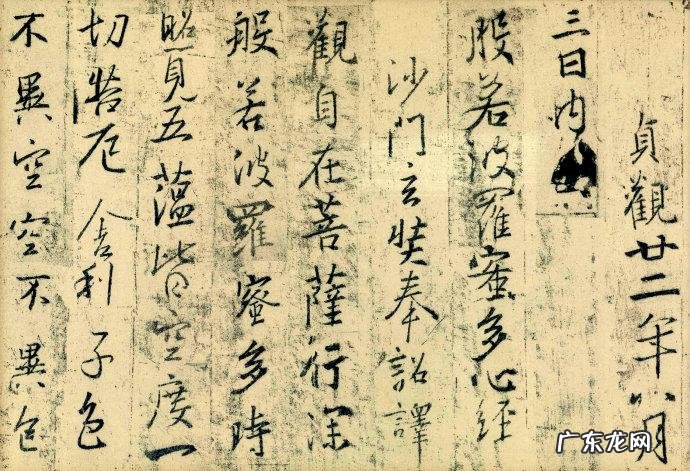 貞觀廿二年八月
三日内
般若波羅蜜多心経
沙門玄奘奉詔譯
觀自在菩薩行深
般若波羅蜜多時
照見五蘊皆空度一
切苦厄舍利子色
不異空空不異色
广东龙网